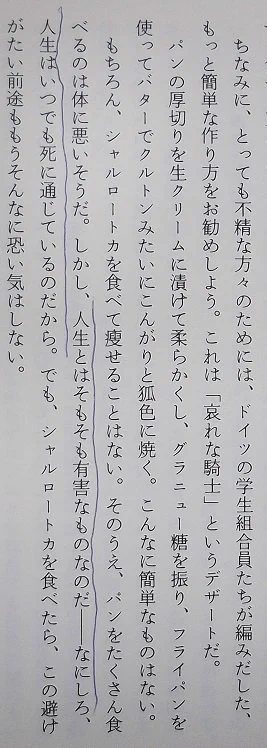 ちなみに、とっても不精な方々のためには、ドイツの学生組合員たちが編みだした、
もっと簡単な作り方をお勧めしよう。これは「哀れな騎士」というデザートだ。
パンの厚切りを生クリームに漬けて柔らかくし、グラニュー糖を振り、フライパンを
使ってバターでクルトンみたいにこんがりと狐色に焼く。こんなに簡単なものはない。
もちろん、シャルロートカを食べて痩せることはない。そのうえ、パンをたくさん食
べるのは体に悪いそうだ。しかし、人生とはそもそも有害なものなのだ――なにしろ、
人生はいつでも死に通じているのだから。でも、シャルロートカを食べたら、この避け
がたい前途ももうそんなに恐い気はしない。